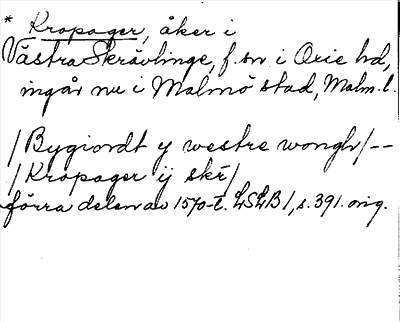 * Kropager, åker i
Västra Skrävlinge, f. sn i Oxie hd,
ingår nu i Malmö stad, Malm. l.
/Bygiordt y westre wongh/--
/Kropager ij skr̄/
förra delen av 1570-t. LSLB 1, s. 391. orig.